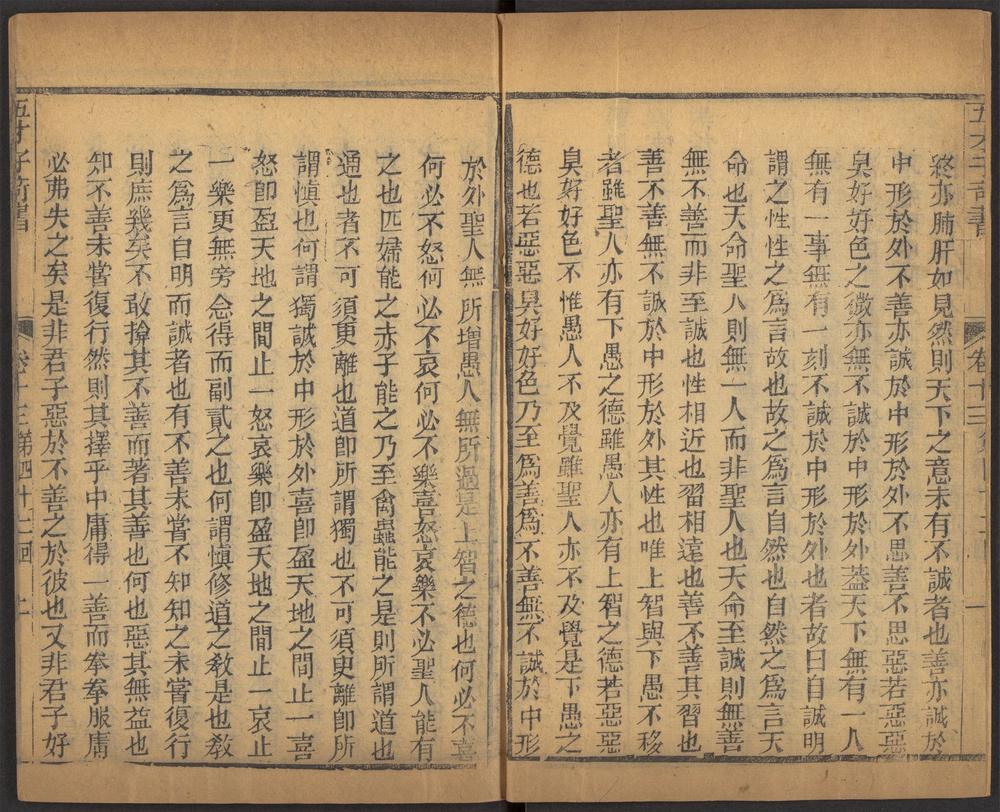 五才子奇書
卷十三
終亦肺肝如見然則天下之意未有不誠者也善亦誠於
中形於外不善亦誠於中形於外不思善不思惡若惡惡
臭好好色之微亦無不誠於中形於外蓋天下無有一人
無有一事無有一刻不誠於中形於外也者故曰自誠明
謂之性性之為言故也故之為言自然也自然之為言天
命也天命聖人則無一人而非聖人也天命至誠則無善
無不善而非至誠也性相近也習相遠也善不善其習也
善不善無不誠於中形於外其性也唯上智與下愚不移
者雖聖人亦有下愚之德雖愚人亦有上智之德若惡惡
臭好好色不惟愚人不及覺雖聖人亦不及覺是下愚之
德也若惡惡臭好好色乃至為善為不善無不誠於中形
於外聖人無所增愚人無所過是上智之德也何必不喜
何必不怒何必不哀何必不樂喜怒哀樂不必聖人能有
之也匹婦能之赤子能之乃至禽蟲能之是則所謂道也
通也者不可須更離也道卽所謂獨也不可須臾離卽所
謂慎也何謂獨誠於中形於外喜卽盈天地之間止一喜
怒卽盈天地之間止一怒哀樂卽盈天地之間止一哀止
一樂更無旁念得而副貳之也何謂慎修道之敎是也敎
之為言自明而誠者也有不善未嘗不知知之未嘗復行
則庶幾矣不敢揜其不善而著其善也何也惡其無益也
知不善未嘗復行然則其擇乎中庸得一善而拳拳服膺
必弗失之矣是非君子惡於不善之於彼也又非君子好
五才子奇書
卷十三第四十二回
二